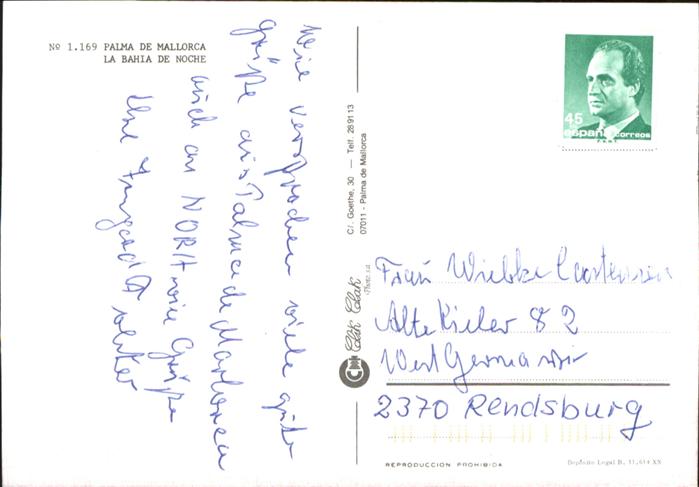 Nº 1.169 PALMA DE MALLORCA
LA BAHIA DE NOCHE
Wie versprochen viele gute
Grüße aus Palma de Mallorca
auch an NORA viele Grüße
Ihre
45
españa correos
F.N.M.T.
C/. Goethe, 30 — Telf. 289113
07011 - Palma de Mallorca
Clik Clak
Photo, s.a.
Frau Wiebke Carstensen
Alte Kieler 82
West Germania
2370 Rendsburg
REPRODUCCION PROHIBIDA
Depósito Legal B. 11.614 XX